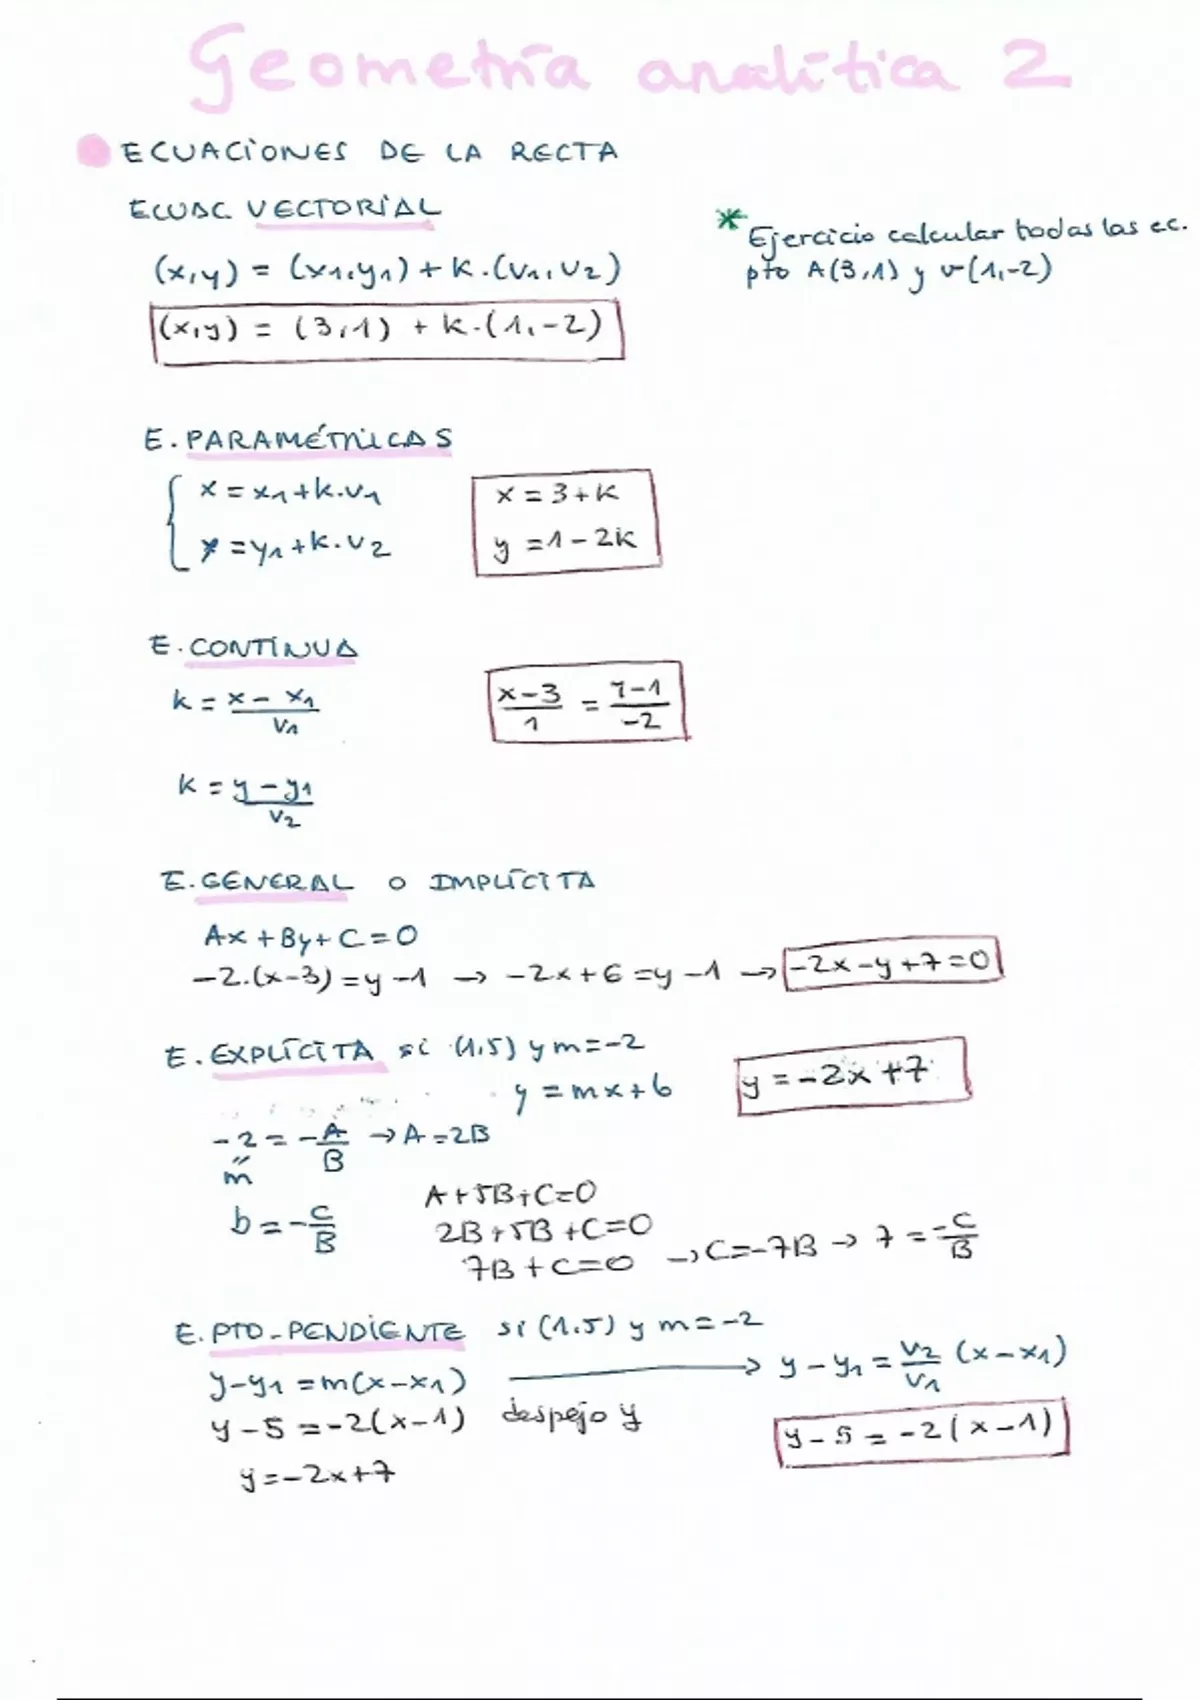 Geometría analítica 2
ECUACIONES DE LA RECTA
ECUAC. VECTORIAL
* Ejercicio calcular todas las ec.
pto A(3,1) y v(1,-2)
(x,y) = (x1,y1) + k.(v1,v2)
(x,y) = (3,1) + k.(1,-2)
E. PARAMÉTRICAS
x = x1+k.v1
y = y1+k.v2
x = 3+k
y = 1-2k
E. CONTÍNUA
k = x - x1 / v1
x-3 / 1 = y-1 / -2
k = y - y1 / v2
E. GENERAL o IMPLÍCITA
Ax + By + C = 0
-2.(x-3) = y -1 → -2x+6 = y -1 → -2x-y+7=0
E. EXPLÍCITA si (1,5) y m=-2
y = mx+b
y = -2x+7
-2 = -A/B → A = 2B
"
m
b = -C/B
A+5B+C=0
2B+5B+C=0
7B+C=0 → C=-7B → 7 = -C/B
E. PTO-PENDIENTE si (1,5) y m=-2
y-y1 = m(x-x1) → y-y1 = v2/v1 (x-x1)
y-5 = -2(x-1) despejo y
y-5 = -2(x-1)
y=-2x+7